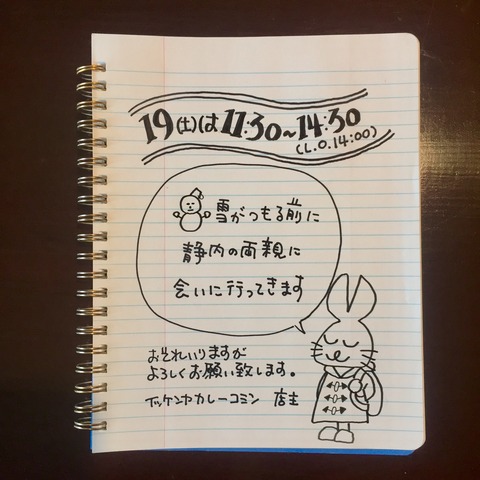 19(土)は11:30~14:30
(L.O.14:00)
雪がつもる前に
静内の両親に
会いに行ってきます
おそれいりますが
よろしくお願い致します。
デッケンヤカレーコミン 店主